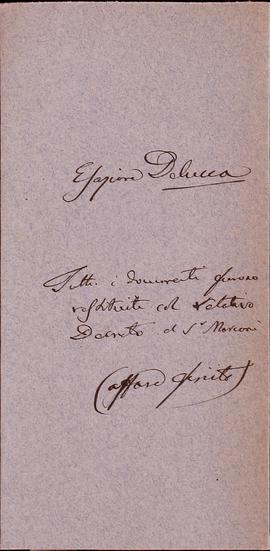 Delucca
Tutti i documenti furono
restituite col relativo
Decreto al Sr Marconi
(affare finito)